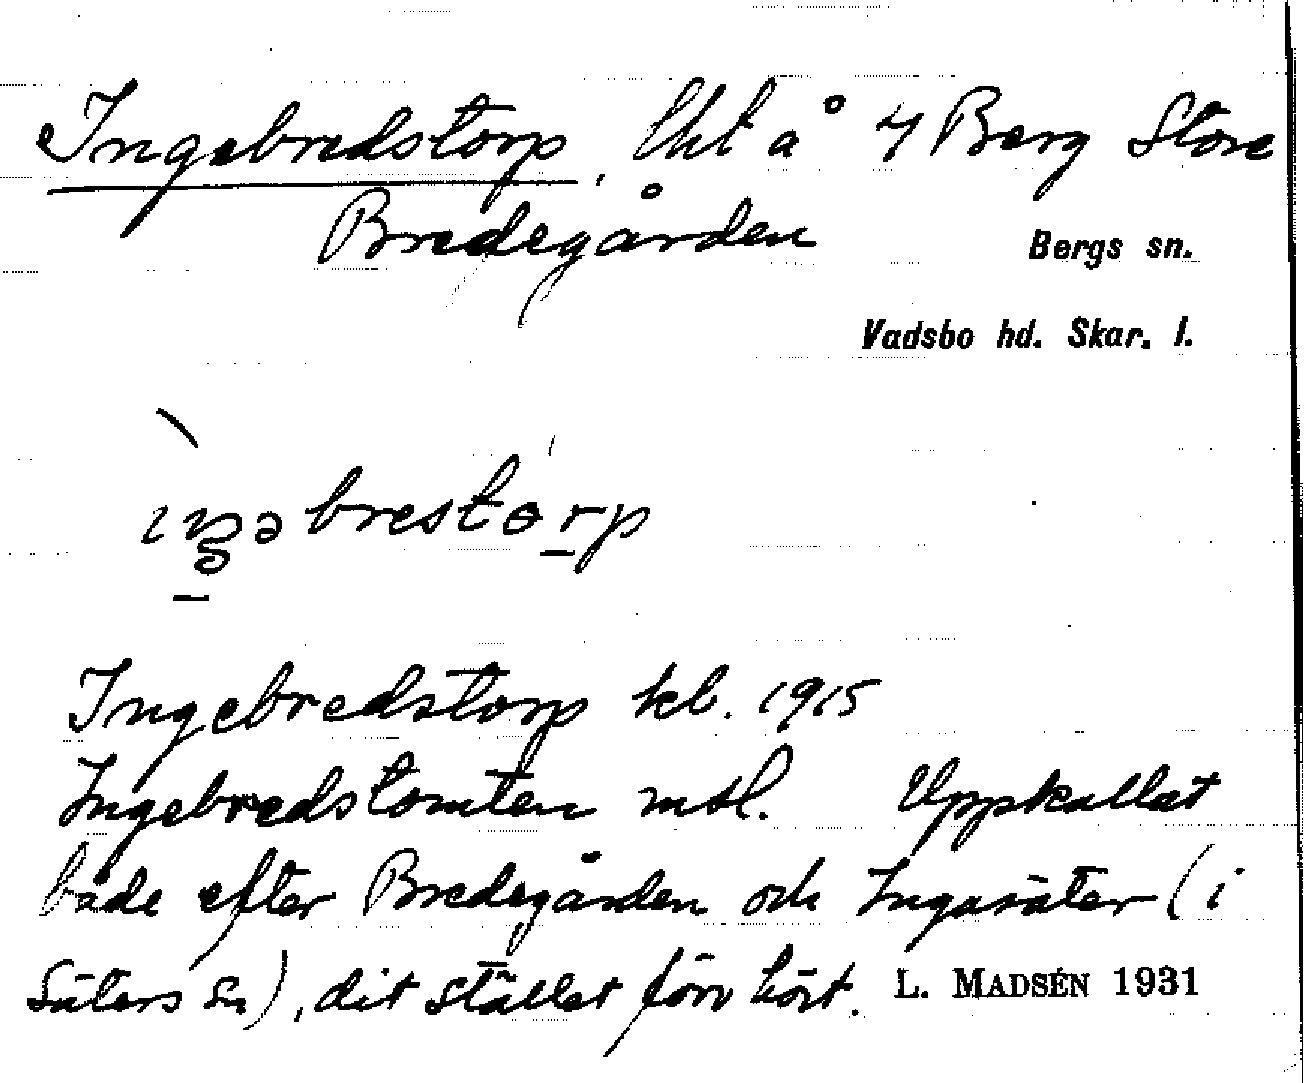 Ingebredstorp, lht å 4 Berg Store
Bredegården
Bergs sn.
Vadsbo hd. Skar. l.
ɩŋəbrestɵrp
Ingebredstorp kb. 1915
Ingebredstomten mtl. Uppkallat
både efter Bredegården och Ingasäter (i
Säters sn), dit stället förr hört.
L. MADSÉN 1931